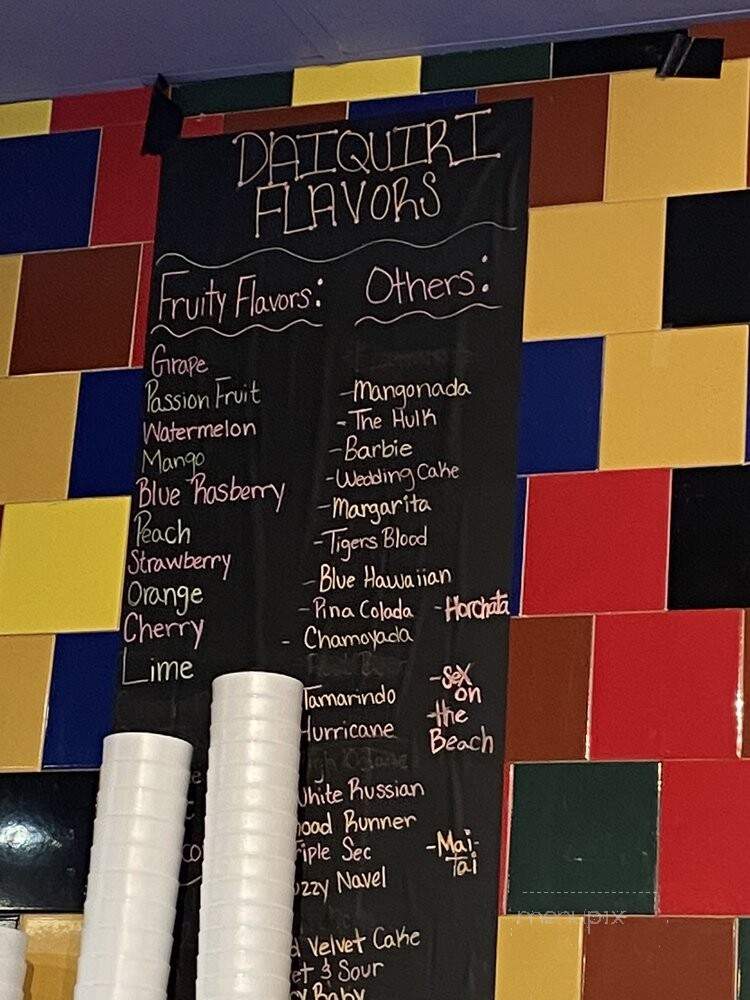 DAIQUIRI
FLAVORS
Fruity Flavors:
Grape
Passion Fruit
Watermelon
Mango
Blue Rosberry
Peach
Strawberry
Orange
Cherry
Lime
Others:
-Mangonada
-The Hulk
-Barbie
-Wedding Cake
-Margarita
-Tigers Blood
-Blue Hawaiian
-Pina Colada -Horchata
- Chamoyada
Tamarindo
-Sex
on
-the
Beach
Hurricane
White Russian
oad Runner
iple Sec
-Mai-
Tai
uzzy Navel
d Velvet Cake
et & Sour
y Baby
menupix